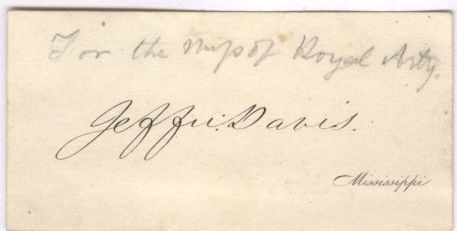 For the Mess of Royal Arty.
Jeffn. Davis.
Mississippi